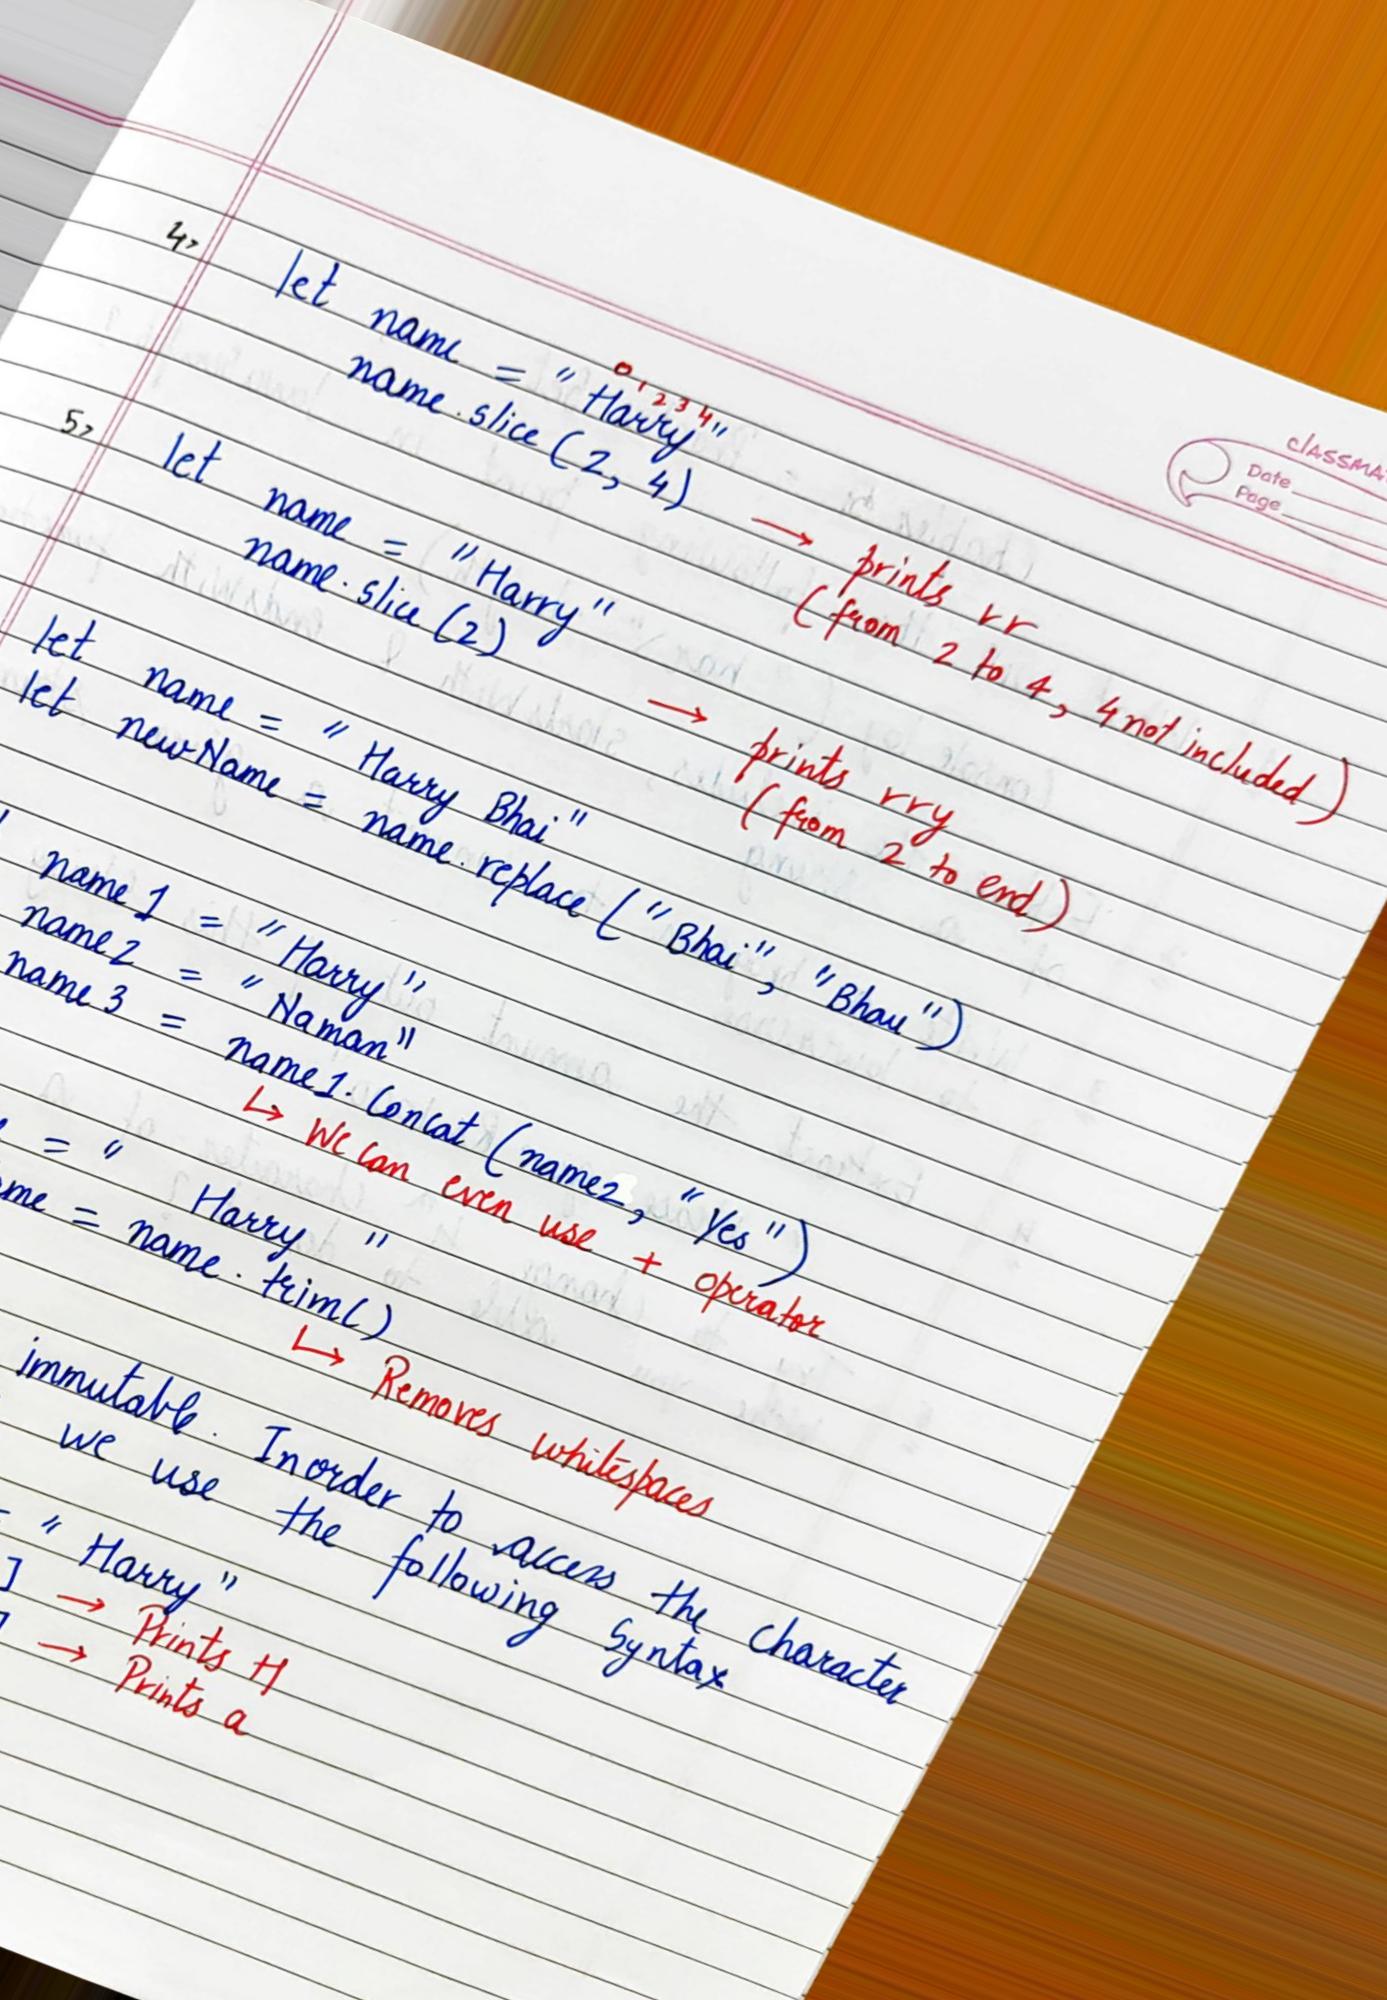 CLASSMA
Date
Page
4>
let name = "Harry"
0 1 2 3 4
name.slice (2, 4)
→ prints rr
(from 2 to 4, 4 not included)
5>
let name = "Harry"
name.slice (2)
→ prints rry
(from 2 to end)
let name = "Harry Bhai"
let newName = name.replace ("Bhai", "Bhau")
name1 = "Harry"
name2 = "Naman"
name3 = name1.Concat (name2, "Yes")
↳ We can even use + operator
= " Harry "
me = name.trim()
↳ Removes whitespaces
immutable. Inorder to access the character
we use the following Syntax
= "Harry"
] → Prints H
] → Prints a